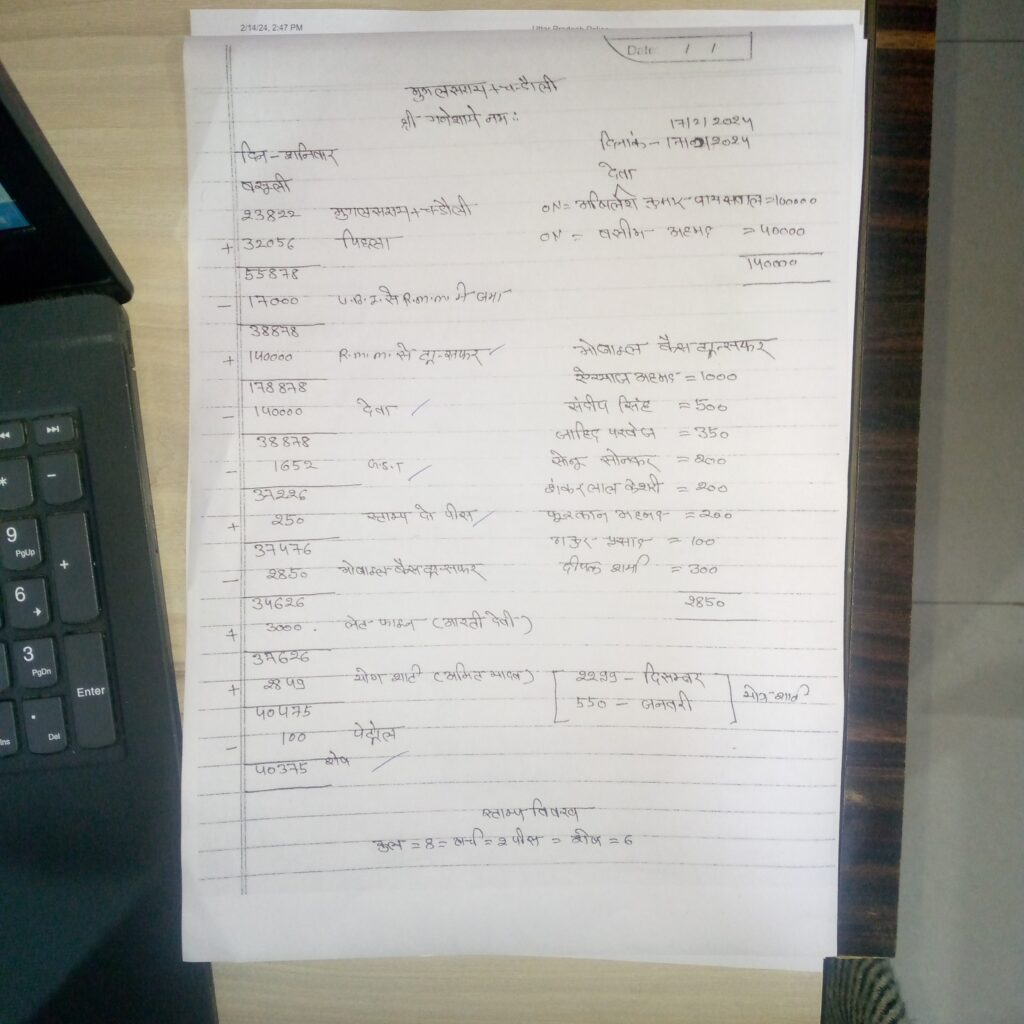 2/14/24, 2:47 PM
Date / /
मुगलसराय + चन्दौली
श्री गणेशाये नमः
17/2/2024
दिन - शनिवार
दिनांक - 17/02/2024
वसूली
देवा
23822 मुगलसराय + चन्दौली
ON = अखिलेश कुमार = 100000
+ 32056 पिछला
ON = वसीम अहमद = 40000
55878
140000
- 17000 U.B.I. से R.m.m. में जमा
38878
+ 140000 R.m.m. से ट्रान्सफर
मोबाइल कैस ट्रान्सफर
178878
अहमद = 1000
- 140000 देवा
संदीप सिंह = 500
38878
जाहिद परवेज = 350
- 1652 G.S.T
सोनू सोनकर = 200
37226
शंकर लाल केशरी = 200
+ 250 स्टाम्प पीस
फुरकान अहमद = 200
37476
प्रसाद = 100
- 2850 मोबाइल कैस ट्रान्सफर
दीपक शर्मा = 300
34626
2850
+ 3000. (आरती देवी)
37626
+ 2849 (अमित यादव)
2299 - दिसम्बर
550 - जनवरी
40475
- 100 पेट्रोल
40375 शेष
स्टाम्प विवरण
कुल = 8 = खर्च = 2 पीस = शेष = 6
Enter
9
PgUp
6
3
PgDn
Ins
Del